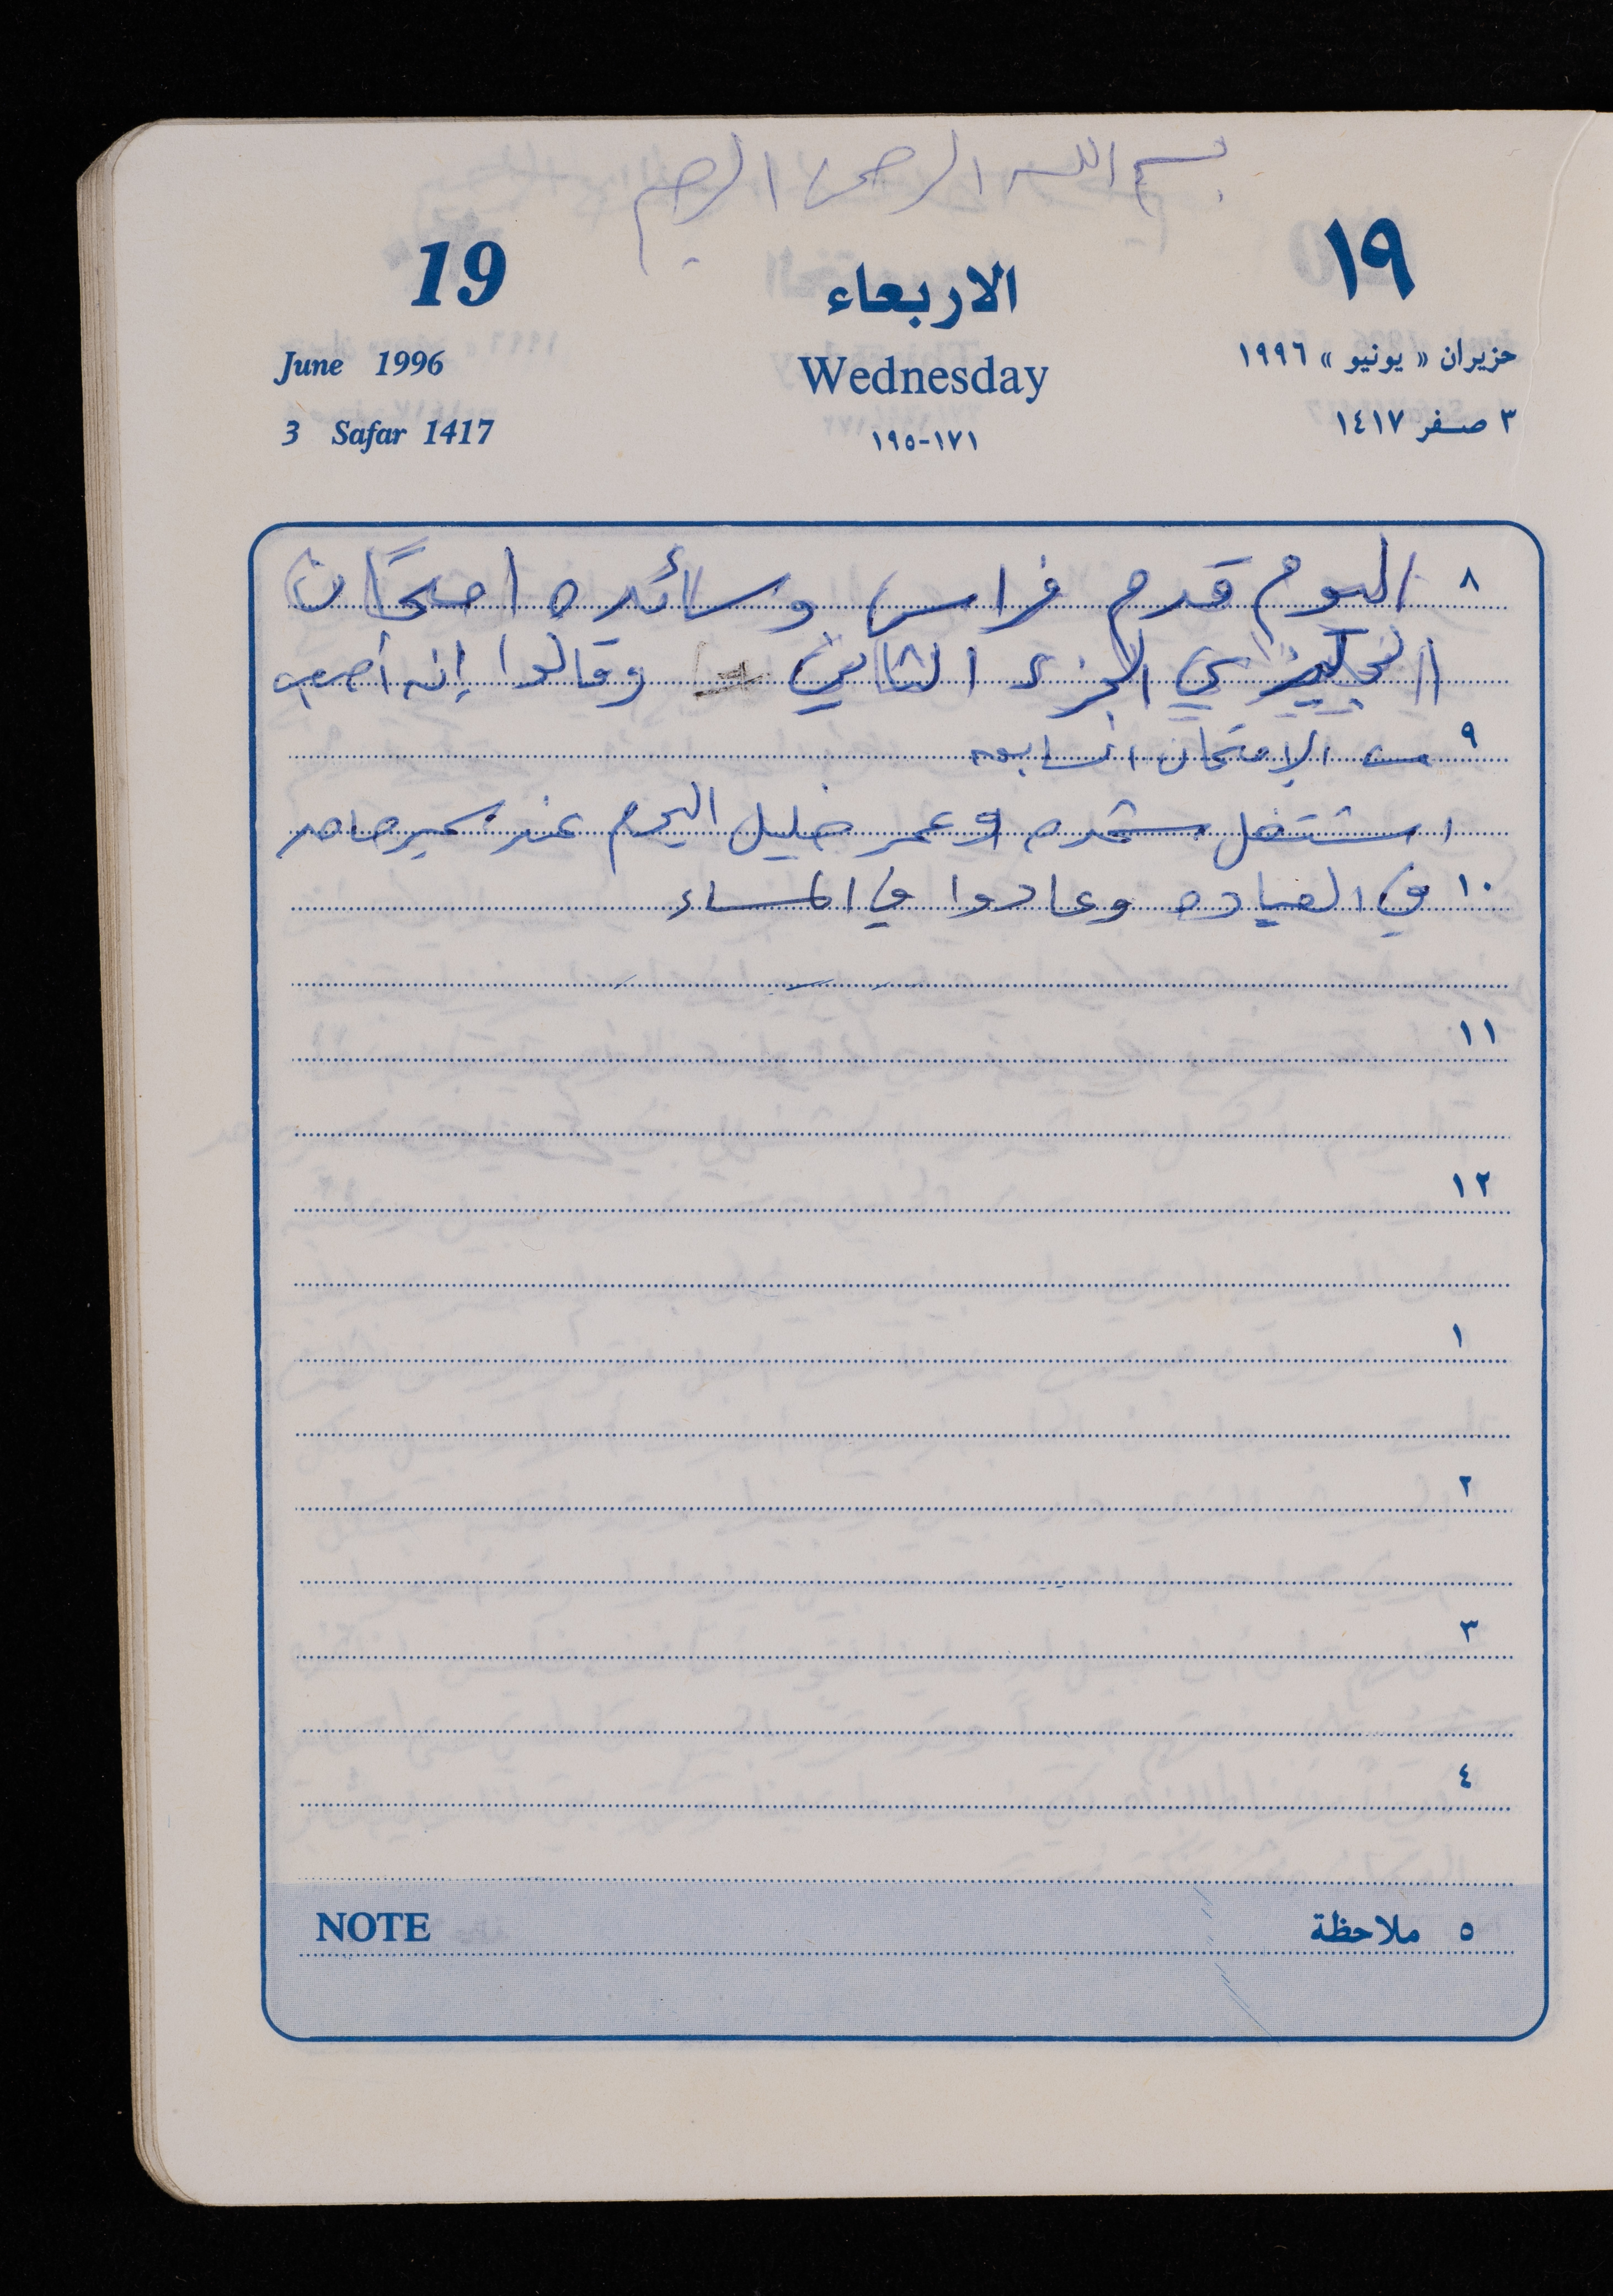 بسم الله الرحمن الرحيم
19 الاربعاء ١٩
June 1996 Wednesday حزيران « يونيو » ١٩٩٦
3 Safar 1417 ١٧١-١٩٥ ٣ صفر ١٤١٧
٨ اليوم قدم فراس وسائده امتحان
انجليزي الجزء الثاني وقالوا إنه أصعب
٩ من الامتحان السابق
اشتغل وعمر خليل اليوم عند سمير
١٠ في العياده وعادوا في المساء
١١
١٢
١
٢
٣
٤
NOTE ٥ ملاحظة